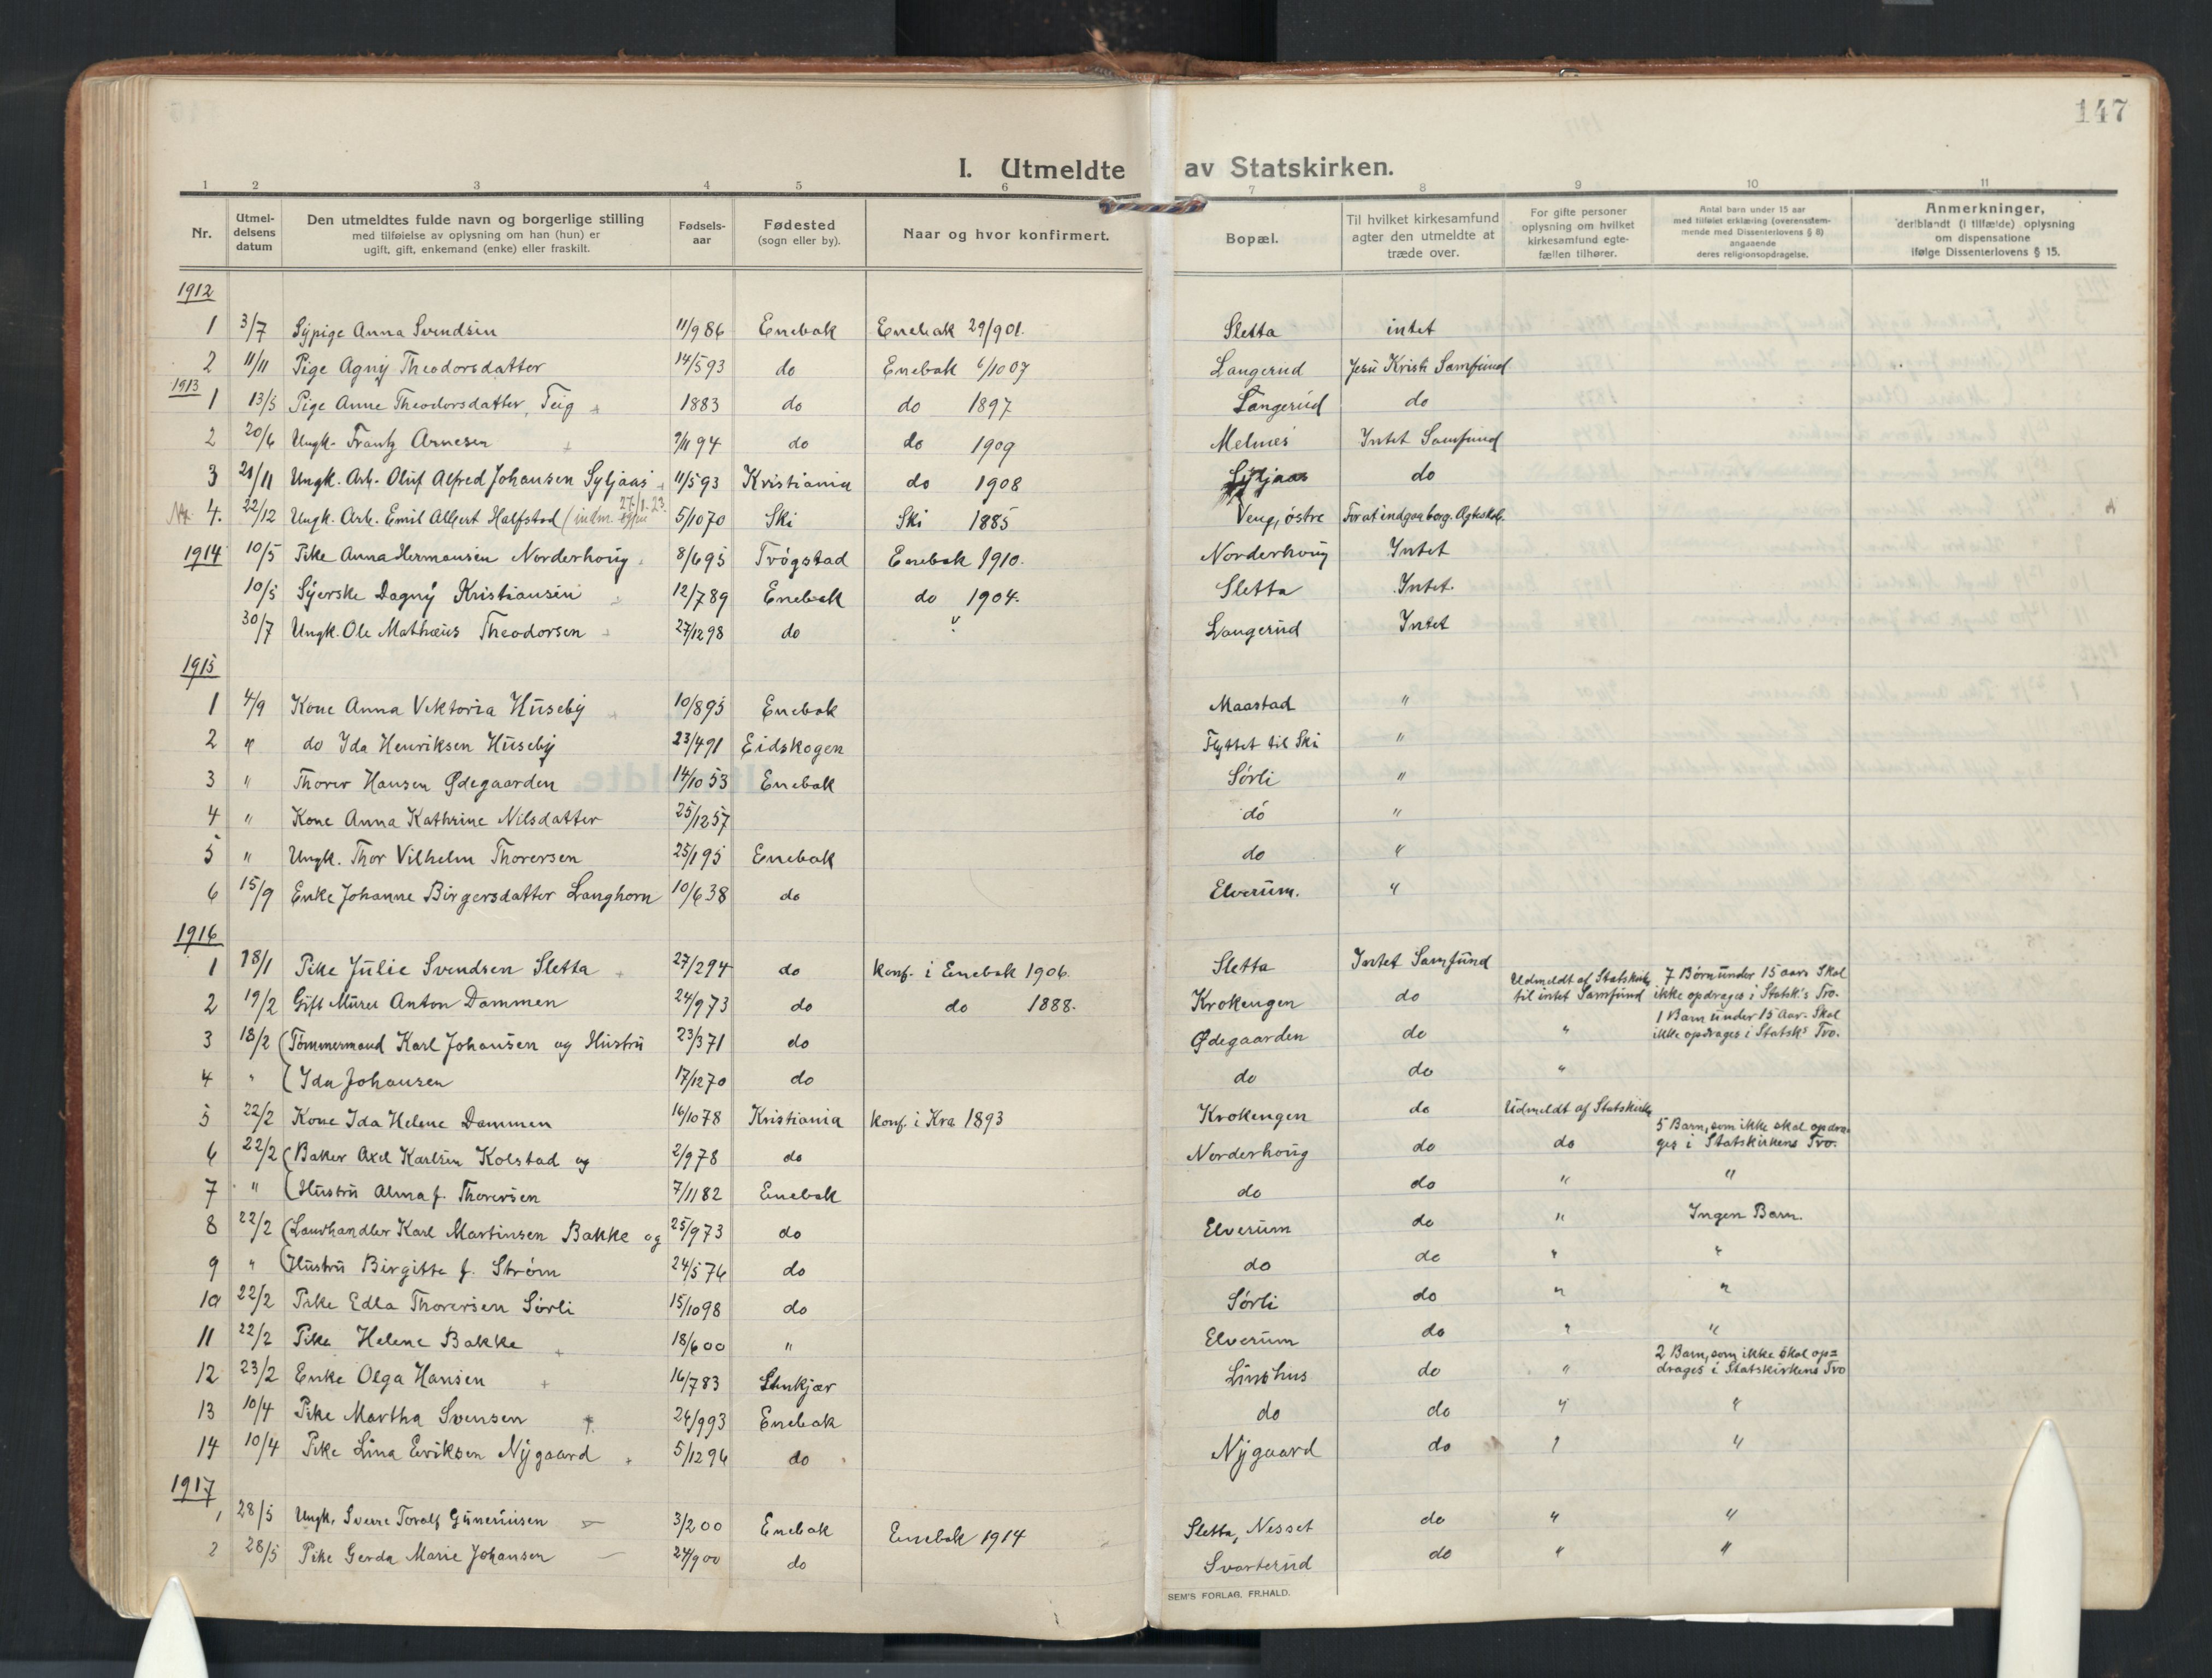 147
I. Utmeldte av Statskirken.
1 2 3 4 5 6 7 8 9 10 11
Nr. | Utmel-delsens datum | Den utmeldtes fulde navn og borgerlige stilling med tilføielse av oplysning om han (hun) er ugift, gift, enkemand (enke) eller fraskilt. | Fødsels-aar | Fødested (sogn eller by). | Naar og hvor konfirmert. | Bopæl. | Til hvilket kirkesamfund agter den utmeldte at træde over. | For gifte personer oplysning om hvilket kirkesamfund egte-fællen tilhører. | Antal barn under 15 aar med tilføiet erklæring (overensstem-mende med Dissenterlovens § 8) angaaende deres religionsopdragelse. | Anmerkninger, deriblandt (i tilfælde) oplysning om dispensatione ifølge Dissenterlovens § 15.
1912
1 3/7 Sypige Anna Svendsen 11/9 86 Enebak Enebak 29/9 01. Sletta intet
2 11/11 Pige Agny Theodorsdatter 14/5 93 do Enebak 6/10 07 Langerud Jesu Kristi Samfund
1913
1 13/5 Pige Anne Theodorsdatter, Teig 1883 do do 1897 Langerud do
2 20/6 Ungk. Frantz Arnesen 9/11 94 do do 1909 Melnes Intet Samfund
3 21/11 Ungk. Arb. Oluf Alfred Johansen Syljaas 11/5 93 Kristiania do 1908 Syljaas do
4. 22/12 Ungk. Arb. Emil Albert Halfstad (indm. igjen 27/1.23. 5/10 70 Ski Ski 1885 Veng, østre For at indgaa borg. Ægtesk.
1914 10/5 Pike Anna Hermansen Norderhoug 8/6 95 Trøgstad Enebak 1910. Norderhoug Intet
10/5 Syerske Dagny Kristiansen 12/7 89 Enebak do 1904. Sletta Intet.
30/7 Ungk. Ole Mathæus Theodorsen 27/12 98 do " Langerud Intet
1915
1 4/9 Kone Anna Vektoria Huseby 10/8 95 Enebak Maastad "
2 " do Ida Henriksen Huseby 23/4 91 Eidskogen Flyttet til Ski "
3 " Thorer Hansen Ødegaarden 14/10 53 Enebak Sørli "
4 " Kone Anna Kathrine Nilsdatter 25/12 57 do "
5 " Ungk. Thor Vilhelm Thorersen 25/1 95 Enebak do "
6 15/9 Enke Johanne Birgersdatter Langhorn 10/6 38 do Elverum. "
1916
1 18/1 Pike Julie Svendsen Sletta 27/2 94 do konf. i Enebak 1906. Sletta Intet Samfund
2 19/2 Gift Murer Anton Dammen 24/9 73 do do 1888. Krokengen do Udmeldt af Statskirk. til intet Samfund 7 Børn under 15 aars Skal ikke opdrages i Statsk's Tro.
3 18/2 (Tømmermand Karl Johansen og Hustru 23/3 71 do Ødegaarden do " 1 Barn under 15 Aar. Skal ikke opdrages i Statsk's Tro.
4 " (Ida Johansen 17/12 70 do do do "
5 22/2 Kone Ida Helene Dammen 16/10 78 Kristiania konf. i Kra 1893 Krokengen do Udmeldt af Statskirke
6 22/2 (Baker Axel Karlsen Kolstad og 2/9 78 do Norderhoug do do 5 Barn, som ikke skal opdra-ges i Statskirkens Tro.
7 " (Hustru Alma f. Thorersen 7/11 82 Enebak do do " "
8 22/2 (Landhandler Karl Martinsen Bakke og 25/9 73 do Elverum do " Ingen Barn.
9 " (Hustru Birgitte f. Strøm 24/5 76 do do do " "
10 22/2 Pike Edla Thorersen Sørli 15/10 98 do Sørli do " "
11 22/2 Pike Helene Bakke 18/6 00 " Elverum do " "
12 23/2 Enke Olga Hansen 16/7 83 Stenkjær do " 2 Barn, som ikke skal op=drages i Statskirkens Tro
13 10/4 Pike Martha Svensen 24/9 93 Enebak do do " "
14 10/4 Pike Lina Eriksen Nygaard 5/12 96 do Nygaard do " "
1917
1 28/5 Ungk. Sverre Toralf Guneriusen 3/2 00 Enebak Enebak 1914 Sletta, Nesset do " "
2 28/5 Pike Gerda Marie Johansen 24/9 00 do Svarterud do " "
SEM'S FORLAG. FR.HALD.